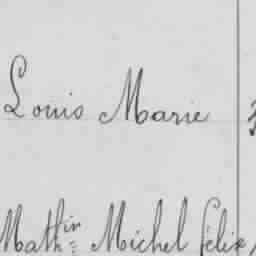 Louis Marie
Mathin Michel félix